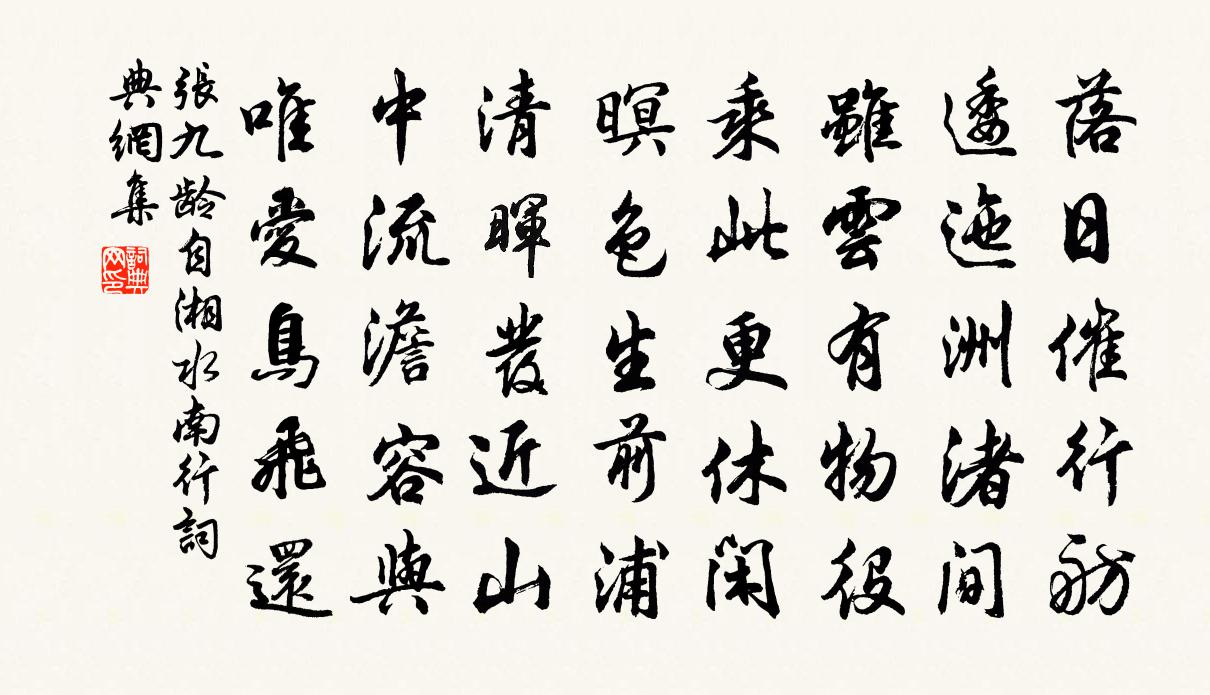 落日催行舫
逶迤洲渚间
雖雲有物役
乘此更休閑
暝色生前浦
清暉發近山
中流澹容與
唯愛鳥飛還
張九齡自湘水南行詞
典網集
詞典網印